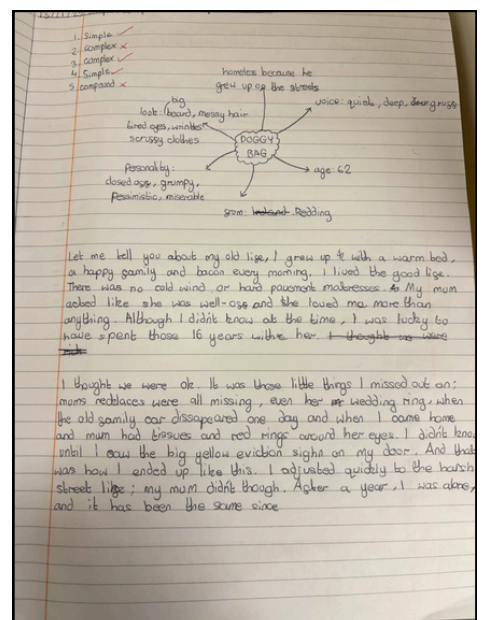 1. Simple ✓
2. complex ×
3. complex ✓
4. Simple ✓
5. compound ×
homeless because he
grew up on the streets
big
look: beard, messy hair
tired eyes, wrinkles
scruffy clothes
voice: quiet, deep, gruff
DOGGY
BAG
Personality:
closed off, grumpy,
Pessimistic, miserable
age: 62
from: Ireland Redding
Let me tell you about my old life, I grew up with a warm bed,
a happy family and bacon every morning. I lived the good life.
There was no cold wind or hard pavement matresses. My mum
acted like she was well-off and she loved me more than
anything. Although I didn't know at the time, I was lucky to
have spent those 16 years withe her. I thought we were
I thought we were ok. It was those little things I missed out on;
mums necklaces were all missing, even her wedding ring, when
the old family car dissapeared one day and when I came home
and mum had tissues and red rings around her eyes. I didn't know
until I saw the big yellow eviction sighn on my door. And that
was how I ended up like this. I adjusted quickly to the harsh
street life; my mum didn't though. After a year, I was alone,
and it has been the same since